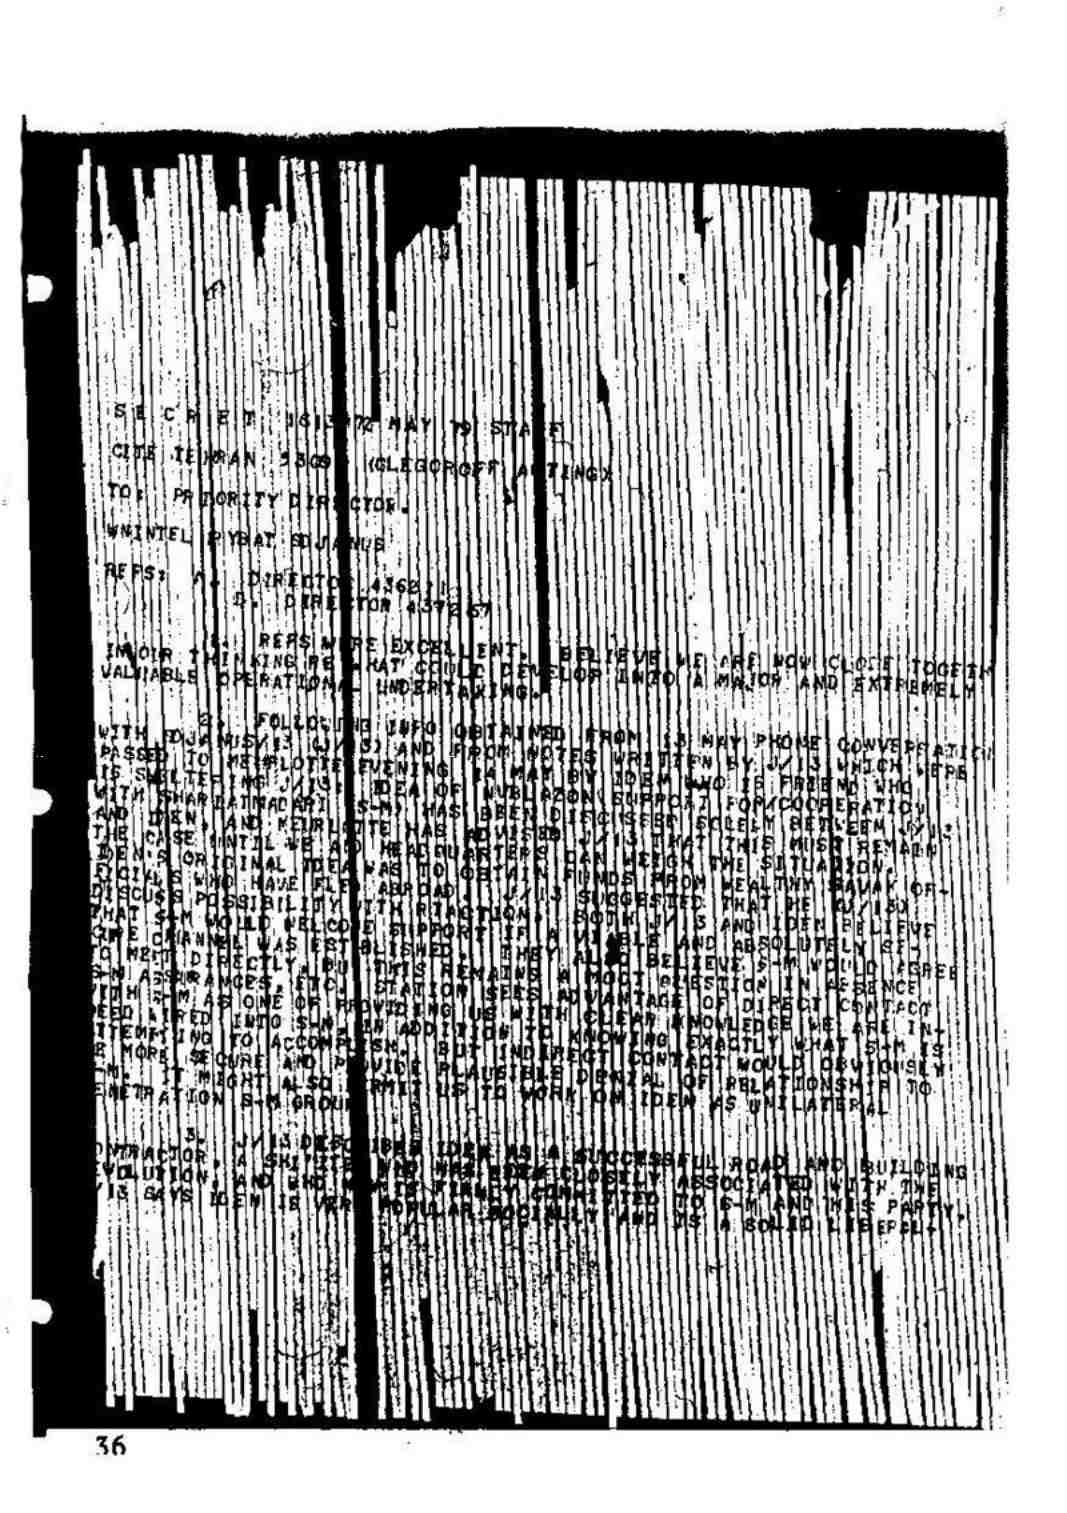 S E C R E T MAY 79 STAFF
CITE TEHRAN ACTING)
TO: PRIORITY DIRECTOR.
WNINTEL RYBAT SDJANUS
REFS: A. DIRECTOR
DIRECTOR
1. REFS WERE EXCELLENT. BELIEVE WE ARE NOW CLOSE TOGETH
IN OUR THINKING RE WHAT COULD DEVELOP INTO A MAJOR AND EXTREMELY
VALUABLE OPERATIONAL UNDERTAKING.
2. FOLLOWING INFO OBTAINED FROM 13 MAY PHONE CONVERSATION
WITH SDJANUS/13 (J/13) AND FROM NOTES WRITTEN BY J/13 WHICH WERE
PASSED TO EVENING 14 MAY BY IDEN WHO IS FRIEND WHO
IS SHELTERING J/13: IDEA OF SUPPORT FOR/COOPERATION
WITH SHARIATMADARI (S-M) HAS BEEN DISCUSSED SOLELY BETWEEN J/13
AND IDEN, AND HAS ADVISED J/13 THAT THIS MUST REMAIN
THE CASE UNTIL WE AND HEADQUARTERS CAN WEIGH THE SITUATION.
IDEN'S ORIGINAL IDEA WAS TO OBTAIN FUNDS FROM WEALTHY SAVAK OF-
FICIALS WHO HAVE FLED ABROAD. J/13 SUGGESTED THAT HE (J/13)
DISCUSS POSSIBILITY WITH BOTH J/13 AND IDEN BELIEVE
THAT S-M WOULD WELCOME SUPPORT IF A VIABLE AND ABSOLUTELY SE-
CURE CHANNEL WAS ESTABLISHED. THEY ALSO BELIEVE S-M WOULD AGREE
TO MEET DIRECTLY, BUT THIS REMAINS A MOOT QUESTION IN ABSENCE
S-M ASSURANCES, ETC. STATION SEES ADVANTAGE OF DIRECT CONTACT
WITH S-M AS ONE OF PROVIDING US WITH CLEAR KNOWLEDGE WE ARE IN-
DEED WIRED INTO S-M, IN ADDITION TO KNOWING EXACTLY WHAT S-M IS
ATTEMPTING TO ACCOMPLISH. BUT INDIRECT CONTACT WOULD OBVIOUSLY
BE MORE SECURE AND PROVIDE PLAUSIBLE DENIAL OF RELATIONSHIP TO
S-M. IT MIGHT ALSO PERMIT US TO WORK ON IDEN AS UNILATERAL
PENETRATION S-M GROUP.
3. J/13 DESCRIBES IDEN AS A SUCCESSFUL ROAD AND BUILDING
CONTRACTOR, A SHIITE WHO WAS CLOSELY ASSOCIATED WITH THE
REVOLUTION, AND WHO IS FIRMLY COMMITTED TO S-M AND HIS PARTY.
J/13 SAYS IDEN IS VERY POPULAR SOCIALLY AND IS A SOLID LIBERAL-
36